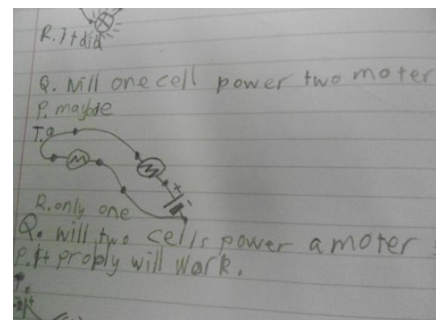 R. It did
Q. Will one cell power two moter
P. maybde
T.
M
M
+ -
R. only one
Q. will two cells power a moter
P. It probly will work.
T.